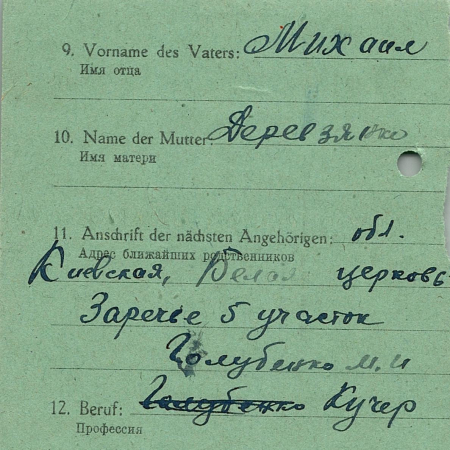 9. Vorname des Vaters: Михаил
Имя отца
10. Name der Mutter: Деревзянко
Имя матери
11. Anschrift der nächsten Angehörigen: обл.
Адрес ближайших родственников
Киевская, Белая церковь
Заречье 5 участок
Голубенко М. И
12. Beruf: Голубенко Кучер
Профессия